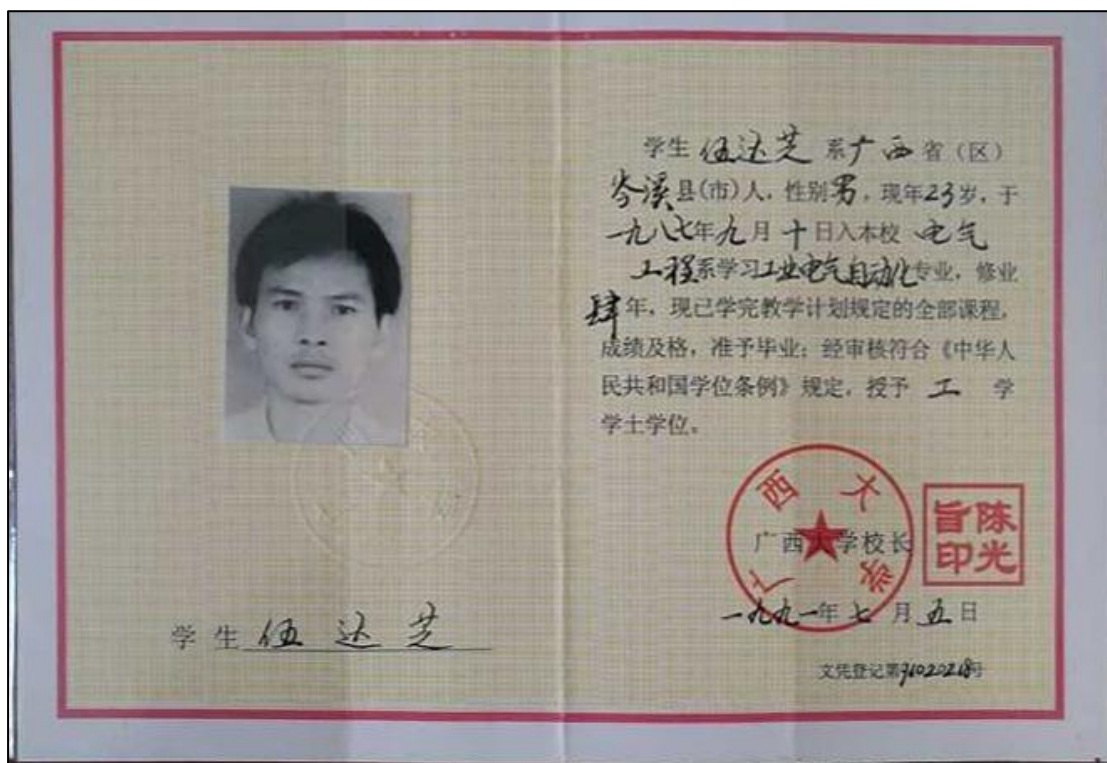 学生 伍达芝 系广西省（区）
岑溪县(市)人，性别男，现年23岁，于
一九八七年九月十日入本校 电气
工程系学习工业电气自动化专业，修业
肆年，现已学完教学计划规定的全部课程，
成绩及格，准予毕业；经审核符合《中华人
民共和国学位条例》规定，授予 工 学
学士学位。
广西大学
广西大学校长
陈光旨印
一九九一年七月五日
学生 伍达芝
文凭登记第号